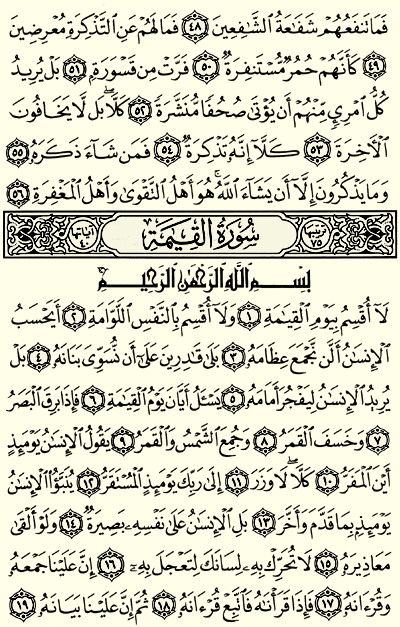 فَمَا تَنفَعُهُمْ شَفَٰعَةُ ٱلشَّٰفِعِينَ ٤٨ فَمَا لَهُمْ عَنِ ٱلتَّذْكِرَةِ مُعْرِضِينَ
٤٩ كَأَنَّهُمْ حُمُرٌ مُّسْتَنفِرَةٌ ٥٠ فَرَّتْ مِن قَسْوَرَةٍۭ ٥١ بَلْ يُرِيدُ
كُلُّ ٱمْرِئٍ مِّنْهُمْ أَن يُؤْتَىٰ صُحُفًا مُّنَشَّرَةً ٥٢ كَلَّا ۖ بَل لَّا يَخَافُونَ
ٱلْءَاخِرَةَ ٥٣ كَلَّآ إِنَّهُۥ تَذْكِرَةٌ ٥٤ فَمَن شَآءَ ذَكَرَهُۥ ٥٥
وَمَا يَذْكُرُونَ إِلَّآ أَن يَشَآءَ ٱللَّهُ ۚ هُوَ أَهْلُ ٱلتَّقْوَىٰ وَأَهْلُ ٱلْمَغْفِرَةِ ٥٦
ترتيبها ٧٥ سُورَةُ القِيَامَة آياتها ٤٠
بِسْمِ ٱللَّهِ ٱلرَّحْمَٰنِ ٱلرَّحِيمِ
لَآ أُقْسِمُ بِيَوْمِ ٱلْقِيَٰمَةِ ١ وَلَآ أُقْسِمُ بِٱلنَّفْسِ ٱللَّوَّامَةِ ٢ أَيَحْسَبُ
ٱلْإِنسَٰنُ أَلَّن نَّجْمَعَ عِظَامَهُۥ ٣ بَلَىٰ قَٰدِرِينَ عَلَىٰٓ أَن نُّسَوِّىَ بَنَانَهُۥ ٤ بَلْ
يُرِيدُ ٱلْإِنسَٰنُ لِيَفْجُرَ أَمَامَهُۥ ٥ يَسْـَٔلُ أَيَّانَ يَوْمُ ٱلْقِيَٰمَةِ ٦ فَإِذَا بَرِقَ ٱلْبَصَرُ
٧ وَخَسَفَ ٱلْقَمَرُ ٨ وَجُمِعَ ٱلشَّمْسُ وَٱلْقَمَرُ ٩ يَقُولُ ٱلْإِنسَٰنُ يَوْمَئِذٍ
أَيْنَ ٱلْمَفَرُّ ١٠ كَلَّا لَا وَزَرَ ١١ إِلَىٰ رَبِّكَ يَوْمَئِذٍ ٱلْمُسْتَقَرُّ ١٢ يُنَبَّؤُا۟ ٱلْإِنسَٰنُ
يَوْمَئِذٍۭ بِمَا قَدَّمَ وَأَخَّرَ ١٣ بَلِ ٱلْإِنسَٰنُ عَلَىٰ نَفْسِهِۦ بَصِيرَةٌ ١٤ وَلَوْ أَلْقَىٰ
مَعَاذِيرَهُۥ ١٥ لَا تُحَرِّكْ بِهِۦ لِسَانَكَ لِتَعْجَلَ بِهِۦٓ ١٦ إِنَّ عَلَيْنَا جَمْعَهُۥ
وَقُرْءَانَهُۥ ١٧ فَإِذَا قَرَأْنَٰهُ فَٱتَّبِعْ قُرْءَانَهُۥ ١٨ ثُمَّ إِنَّ عَلَيْنَا بَيَانَهُۥ ١٩